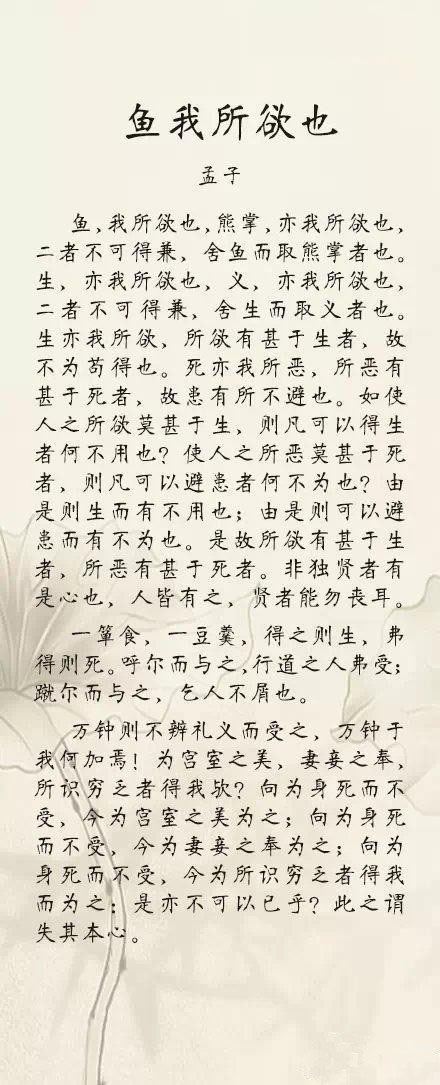 鱼我所欲也
孟子
鱼,我所欲也,熊掌,亦我所欲也,
二者不可得兼,舍鱼而取熊掌者也。
生,亦我所欲也,义,亦我所欲也,
二者不可得兼,舍生而取义者也。
生亦我所欲,所欲有甚于生者,故
不为苟得也。死亦我所恶,所恶有
甚于死者,故患有所不避也。如使
人之所欲莫甚于生,则凡可以得生
者何不用也?使人之所恶莫甚于死
者,则凡可以避患者何不为也?由
是则生而有不用也;由是则可以避
患而有不为也。是故所欲有甚于生
者,所恶有甚于死者。非独贤者有
是心也,人皆有之,贤者能勿丧耳。
一箪食,一豆羹,得之则生,弗
得则死。呼尔而与之,行道之人弗受;
蹴尔而与之,乞人不屑也。
万钟则不辨礼义而受之,万钟于
我何加焉!为宫室之美,妻妾之奉,
所识穷乏者得我欤?向为身死而不
受,今为宫室之美为之;向为身死
而不受,今为妻妾之奉为之;向为
身死而不受,今为所识穷乏者得我
而为之:是亦不可以已乎?此之谓
失其本心。